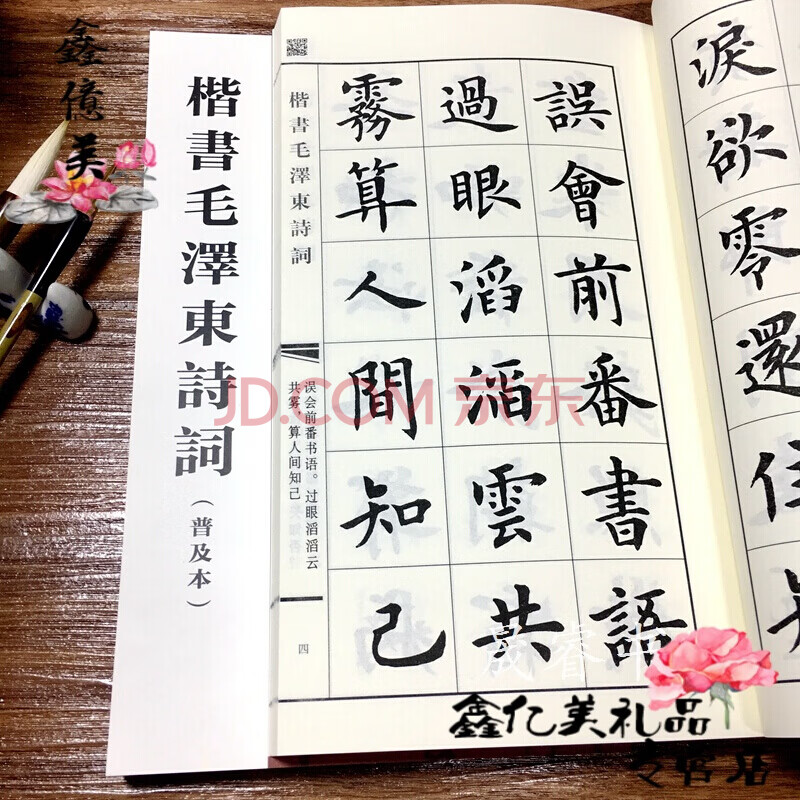 鑫億美
楷書毛澤東詩詞
（普及本）
楷書毛澤東詩詞
误会前番书语。过眼滔滔云
共雾，算人间知己
四
誤會前番書語
過眼滔滔雲共
霧算人間知己
淚欲零還住
JD.COM 京东
晟睿
鑫亿美礼品
专营店